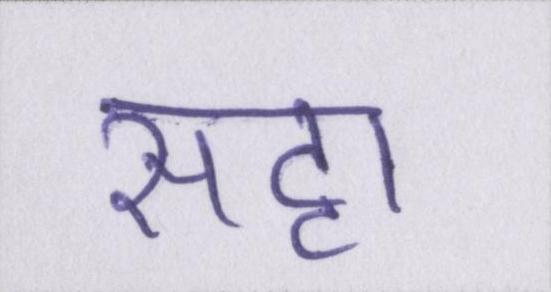 सट्टा